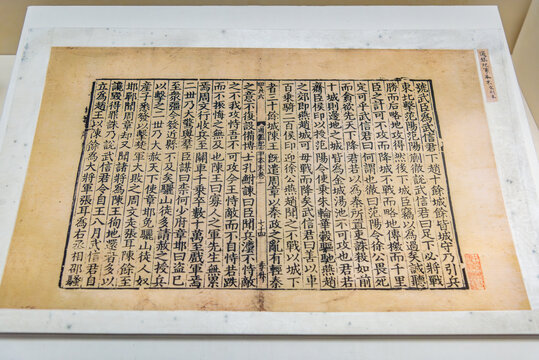 號武臣為武信君下趙十餘城餘皆城守乃引兵
東北擊范陽范陽蒯徹說武信君曰足下必將戰
勝而後略地攻得然後下城臣竊以為過矣誠聽
臣之計可不攻而降城不戰而略地傳檄而千里
定可乎武信君曰何謂也徹曰范陽令徐公畏死
而貪欲先天下降君若以為秦所置吏誅殺如前
十城則邊地之城皆為金城湯池不可攻也君若
齎臣侯印以授范陽令使乘朱輪華轂驅馳燕趙
之郊即燕趙城可毋戰而降矣武信君曰善以車
百乘騎二百侯印迎徐公燕趙聞之不戰以城下
者三十餘城陳王既遣周章以秦政之亂有輕秦
之意不復設備博士孔鮒諫曰臣聞兵法不恃敵
之不我攻恃吾不可攻今王恃敵而不自恃若跌
而不振悔之無及也陳王曰寡人之軍先生無累
焉周文行收兵至關車千乘卒數十萬至戲軍焉
二世乃大驚與羣臣謀曰柰何少府章邯曰盜已
至衆彊今發近縣不及矣驪山徒多請赦之授兵
以擊之二世乃大赦天下使章邯免驪山徒人奴
產子悉發以擊楚軍大敗之周文走張耳陳餘至
邯鄲聞周章却又聞諸將為陳王徇地還者多以
讒毀得罪誅乃說武信君令自王八月武信君自
立為趙王陳餘為大將軍張耳為右丞相邵騷